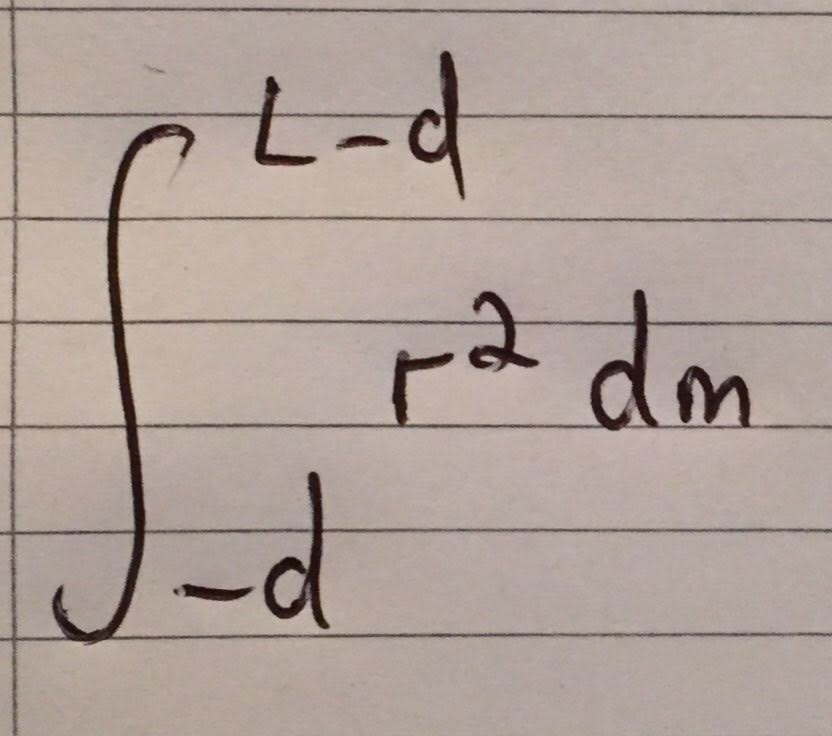 ∫_{-d}^{L-d} r² dm